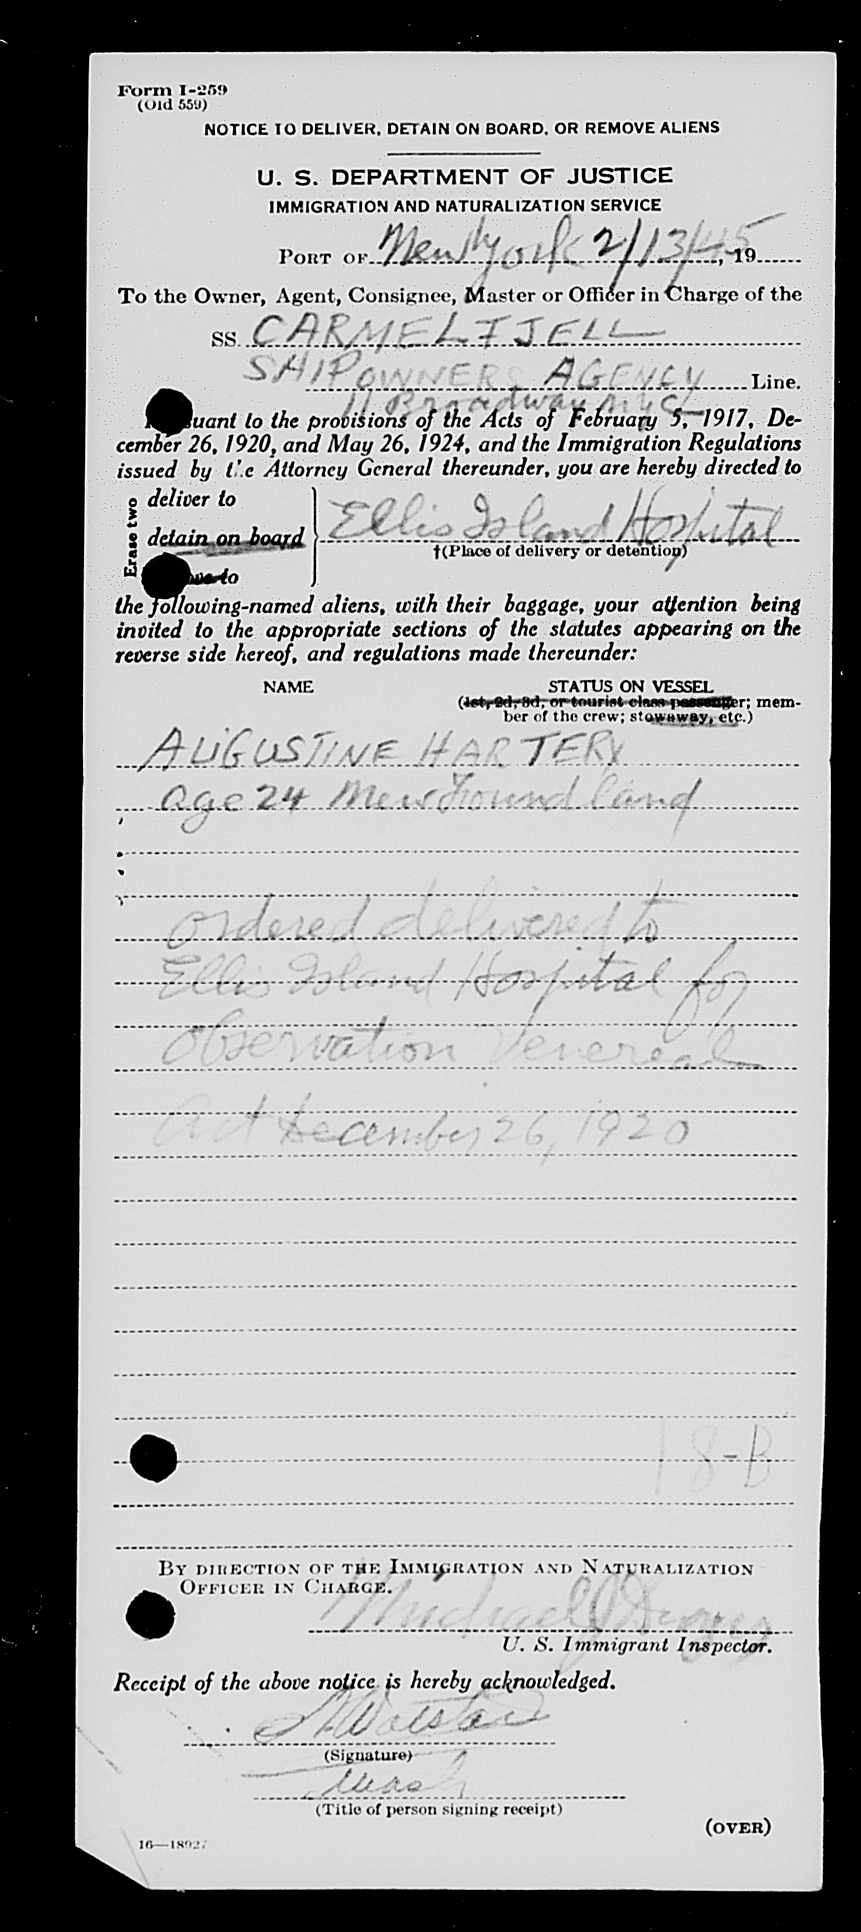 Form I-259
(Old 559)
NOTICE TO DELIVER, DETAIN ON BOARD, OR REMOVE ALIENS
U. S. DEPARTMENT OF JUSTICE
IMMIGRATION AND NATURALIZATION SERVICE
PORT OF New York 2/13/45, 19
To the Owner, Agent, Consignee, Master or Officer in Charge of the
SS CARMELFJELL
SHIPOWNERS AGENCY Line.
11 Broadway NYC
suant to the provisions of the Acts of February 5, 1917, De-
cember 26, 1920, and May 26, 1924, and the Immigration Regulations
issued by the Attorney General thereunder, you are hereby directed to
Erase two
deliver to
detain on board
Ellis Island Hospital
†(Place of delivery or detention)
to
the following-named aliens, with their baggage, your attention being
invited to the appropriate sections of the statutes appearing on the
reverse side hereof, and regulations made thereunder:
NAME STATUS ON VESSEL
(1st, 2d, 3d, or tourist class passenger; mem-
ber of the crew; stowaway, etc.)
AUGUSTINE HARTERY
age 24 Newfoundland
Ordered delivered to
Ellis Island Hospital for
Observation Venereal
Act December 26, 1920
18-B
BY DIRECTION OF THE IMMIGRATION AND NATURALIZATION
OFFICER IN CHARGE.
Michael J
U. S. Immigrant Inspector.
Receipt of the above notice is hereby acknowledged.
(Signature)
(Title of person signing receipt)
(OVER)
16—18927